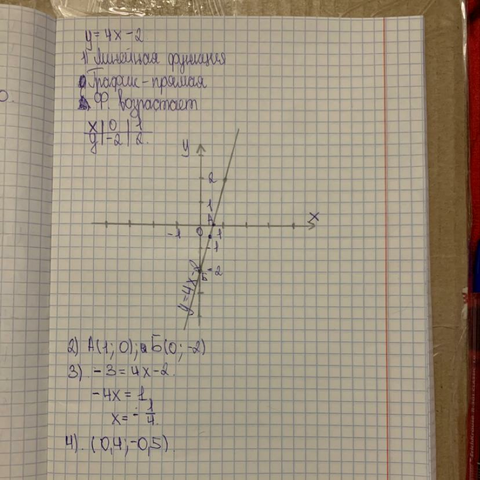 y=4x-2
1) Линейная функция
График - прямая
Ф. возрастает
x | 0 | 1
y | -2 | 2
y
2
1
A
x
-1 0 1
-1
Б -2
y=4x-2
2) A(1; 0); Б(0; -2)
3) -3=4x-2.
-4x=1
x=-1/4.
4). (0,4;-0,5)